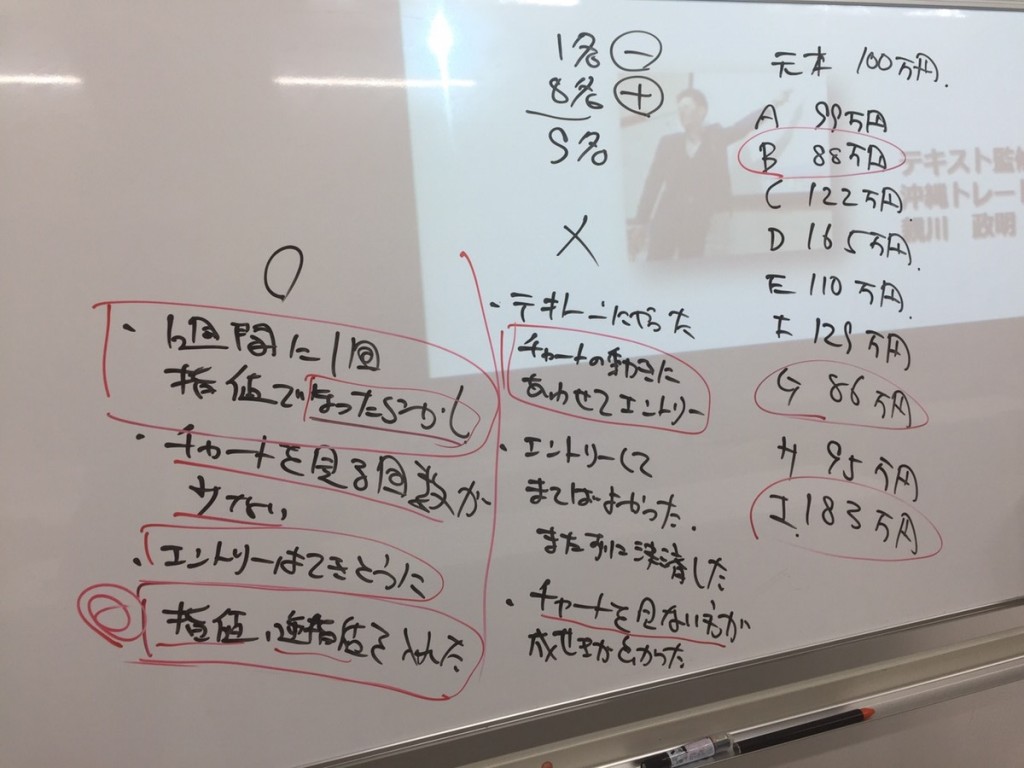 1名 ⊖
8名 ⊕
9名
元本 100万円.
A 99万円
B 88万円
C 122万円
D 165万円.
E 110万円.
F 129万円
G 86万円
H 95万円
I 183万円
テキスト監修
沖縄トレード
親川 政明
○
・1週間に1回
指値で
・チャートを見る回数が
少ない
・エントリーはてきとうに
◎ 指値、逆指値を入れた
×
・テキトーにやった
チャートの動きに
あわせてエントリー
・エントリーして
まてばよかった.
またずに決済した
・チャートを見ない方が
成せきがよかった